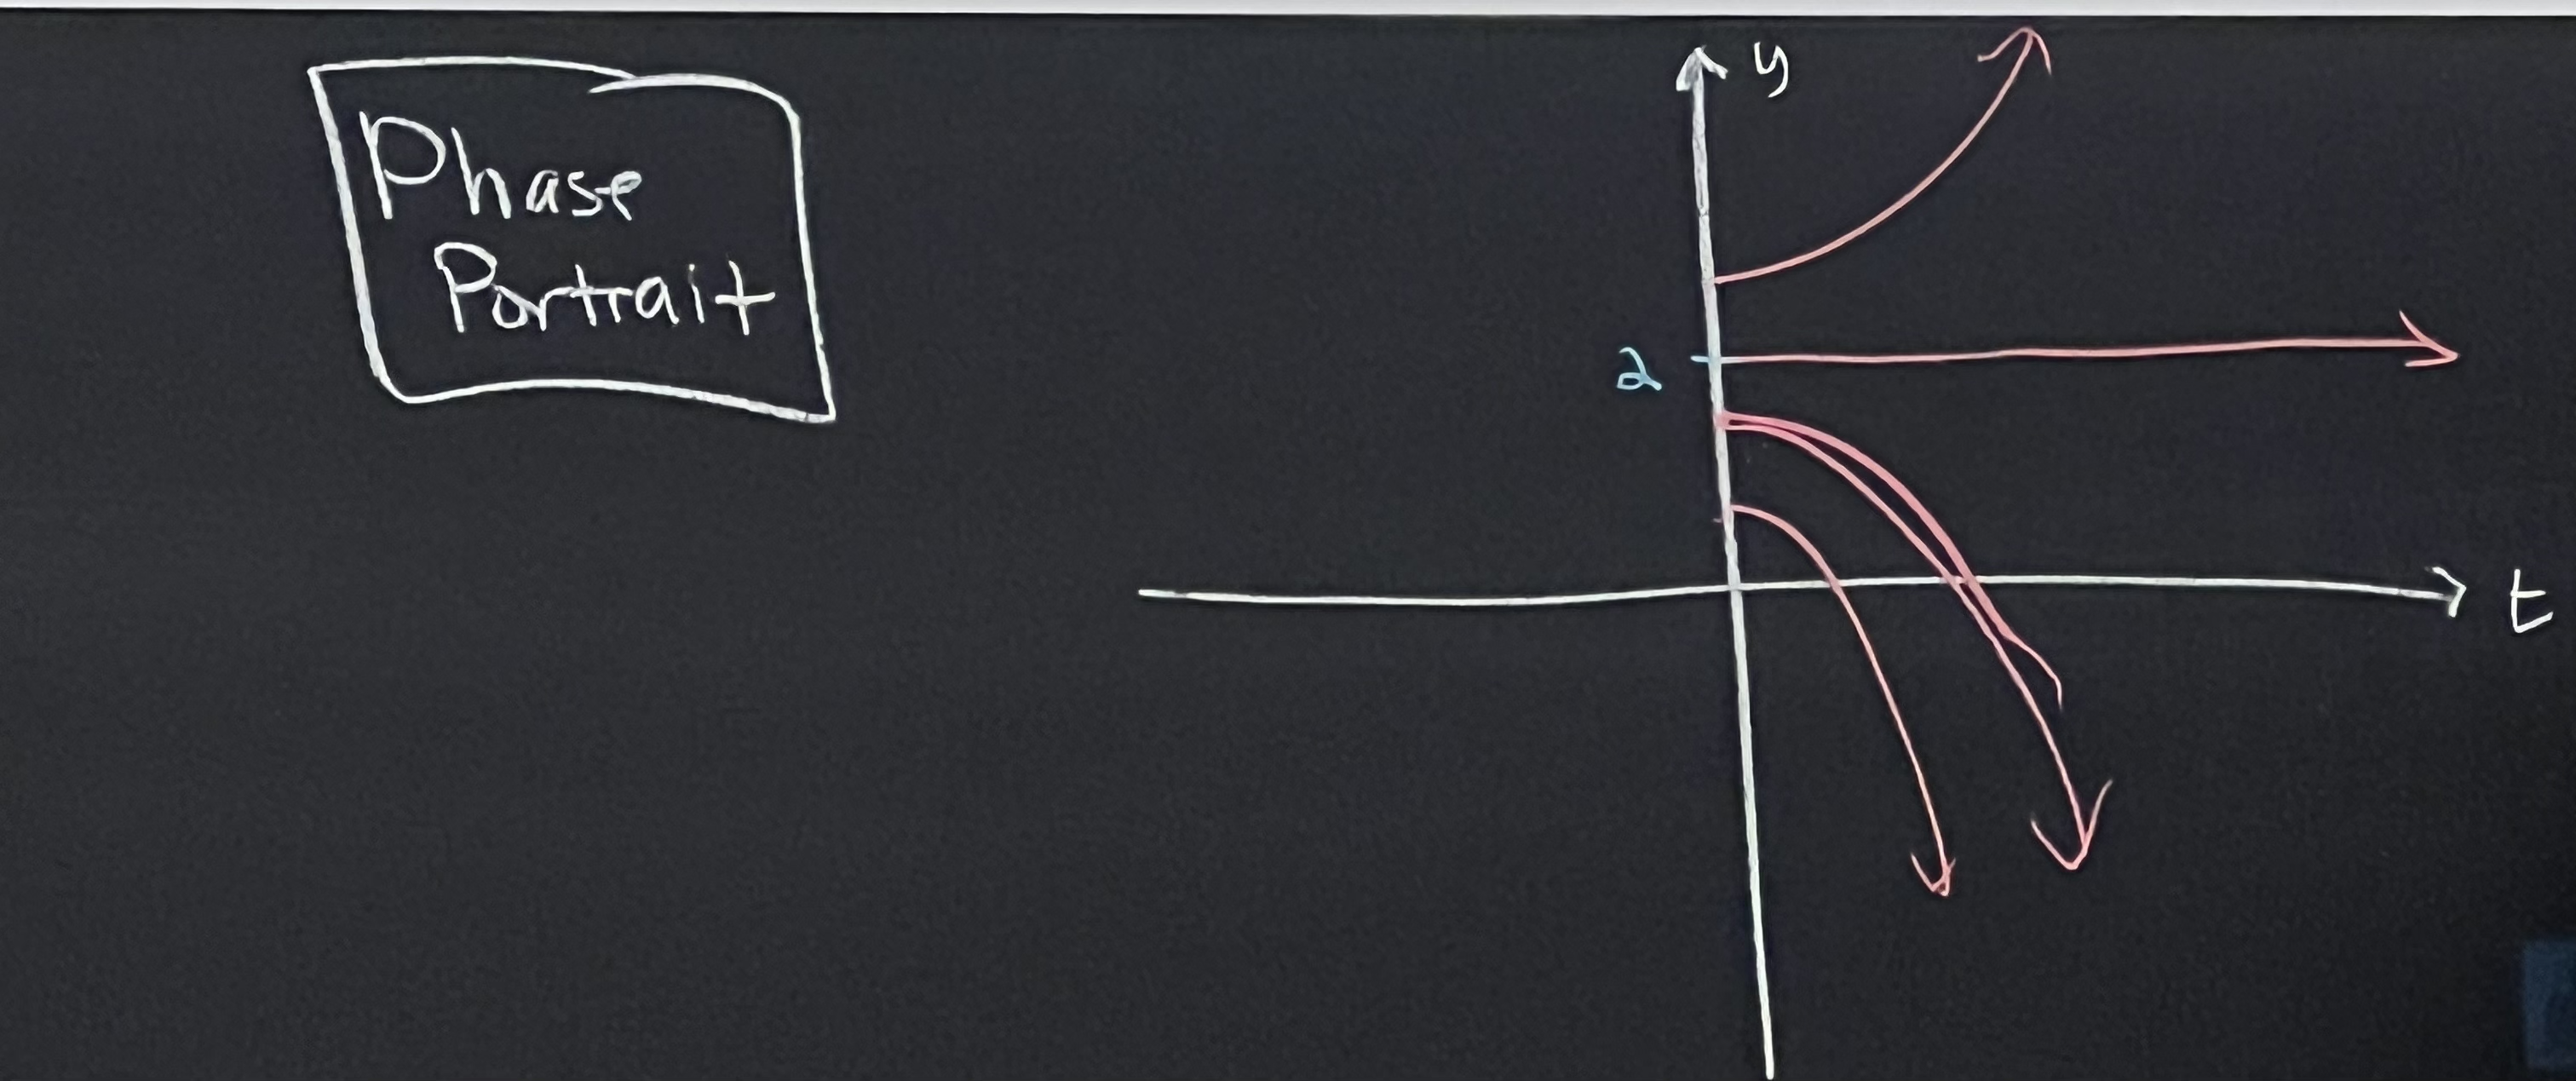 Phase
Portrait
y
2
t